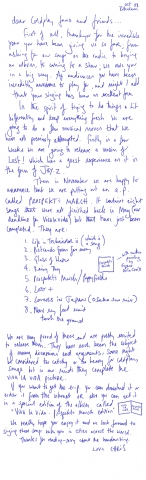 Dear Coldplay fans and friends...
First of all, thankyou for the incredible
year you have given us so far, from
asking for our songs on the radio, to buying
an album, to coming to a show, we owe you
in a big way. The audiences you have been
incredibly awesome to play for and made it all
In the spirit of trying to do things a bit
differently and keep everything fresh we are
going to do a few musical moves that we
have not previously attempted. Firstly, in a few
weeks we are going to release a version of
Lost! which has a guest experience on it in
the form of JAY Z.
Then in November we are happy to
announce that we are putting out an E.P.
called (PROSPEKTS MARCH). It contains eight
songs that were not finished back in May (our
deadline for Viva Vida) but that have just been
completed. They are:
1. Life in Technicolor ii (which is a song)
2. Postcards from far away
3. Glass of Water
4. Rainy Day
5. Prospekts March/Poppyfields
6. Lost +
7. Lovers in Japan (Osaka sun mix)
8. Now my feet wont
touch the ground
We are very proud of them and are really excited
to release them. They have each been the subject
of many discussions and arguments. Some might
be considered too catchy or too heavy for Coldplay
songs but in our minds they complete the
viva la vida picture.
If you want to get the E.P. you can download it or
order it from the internet or else you can get it
in a special edition of the album called
"Viva la Vida - Prospekts March edition".
We really hope you enjoy it and we look forward to
singing these songs with you in cities around the world.
Thanks for reading, sorry about the handwriting.
Love CHRIS